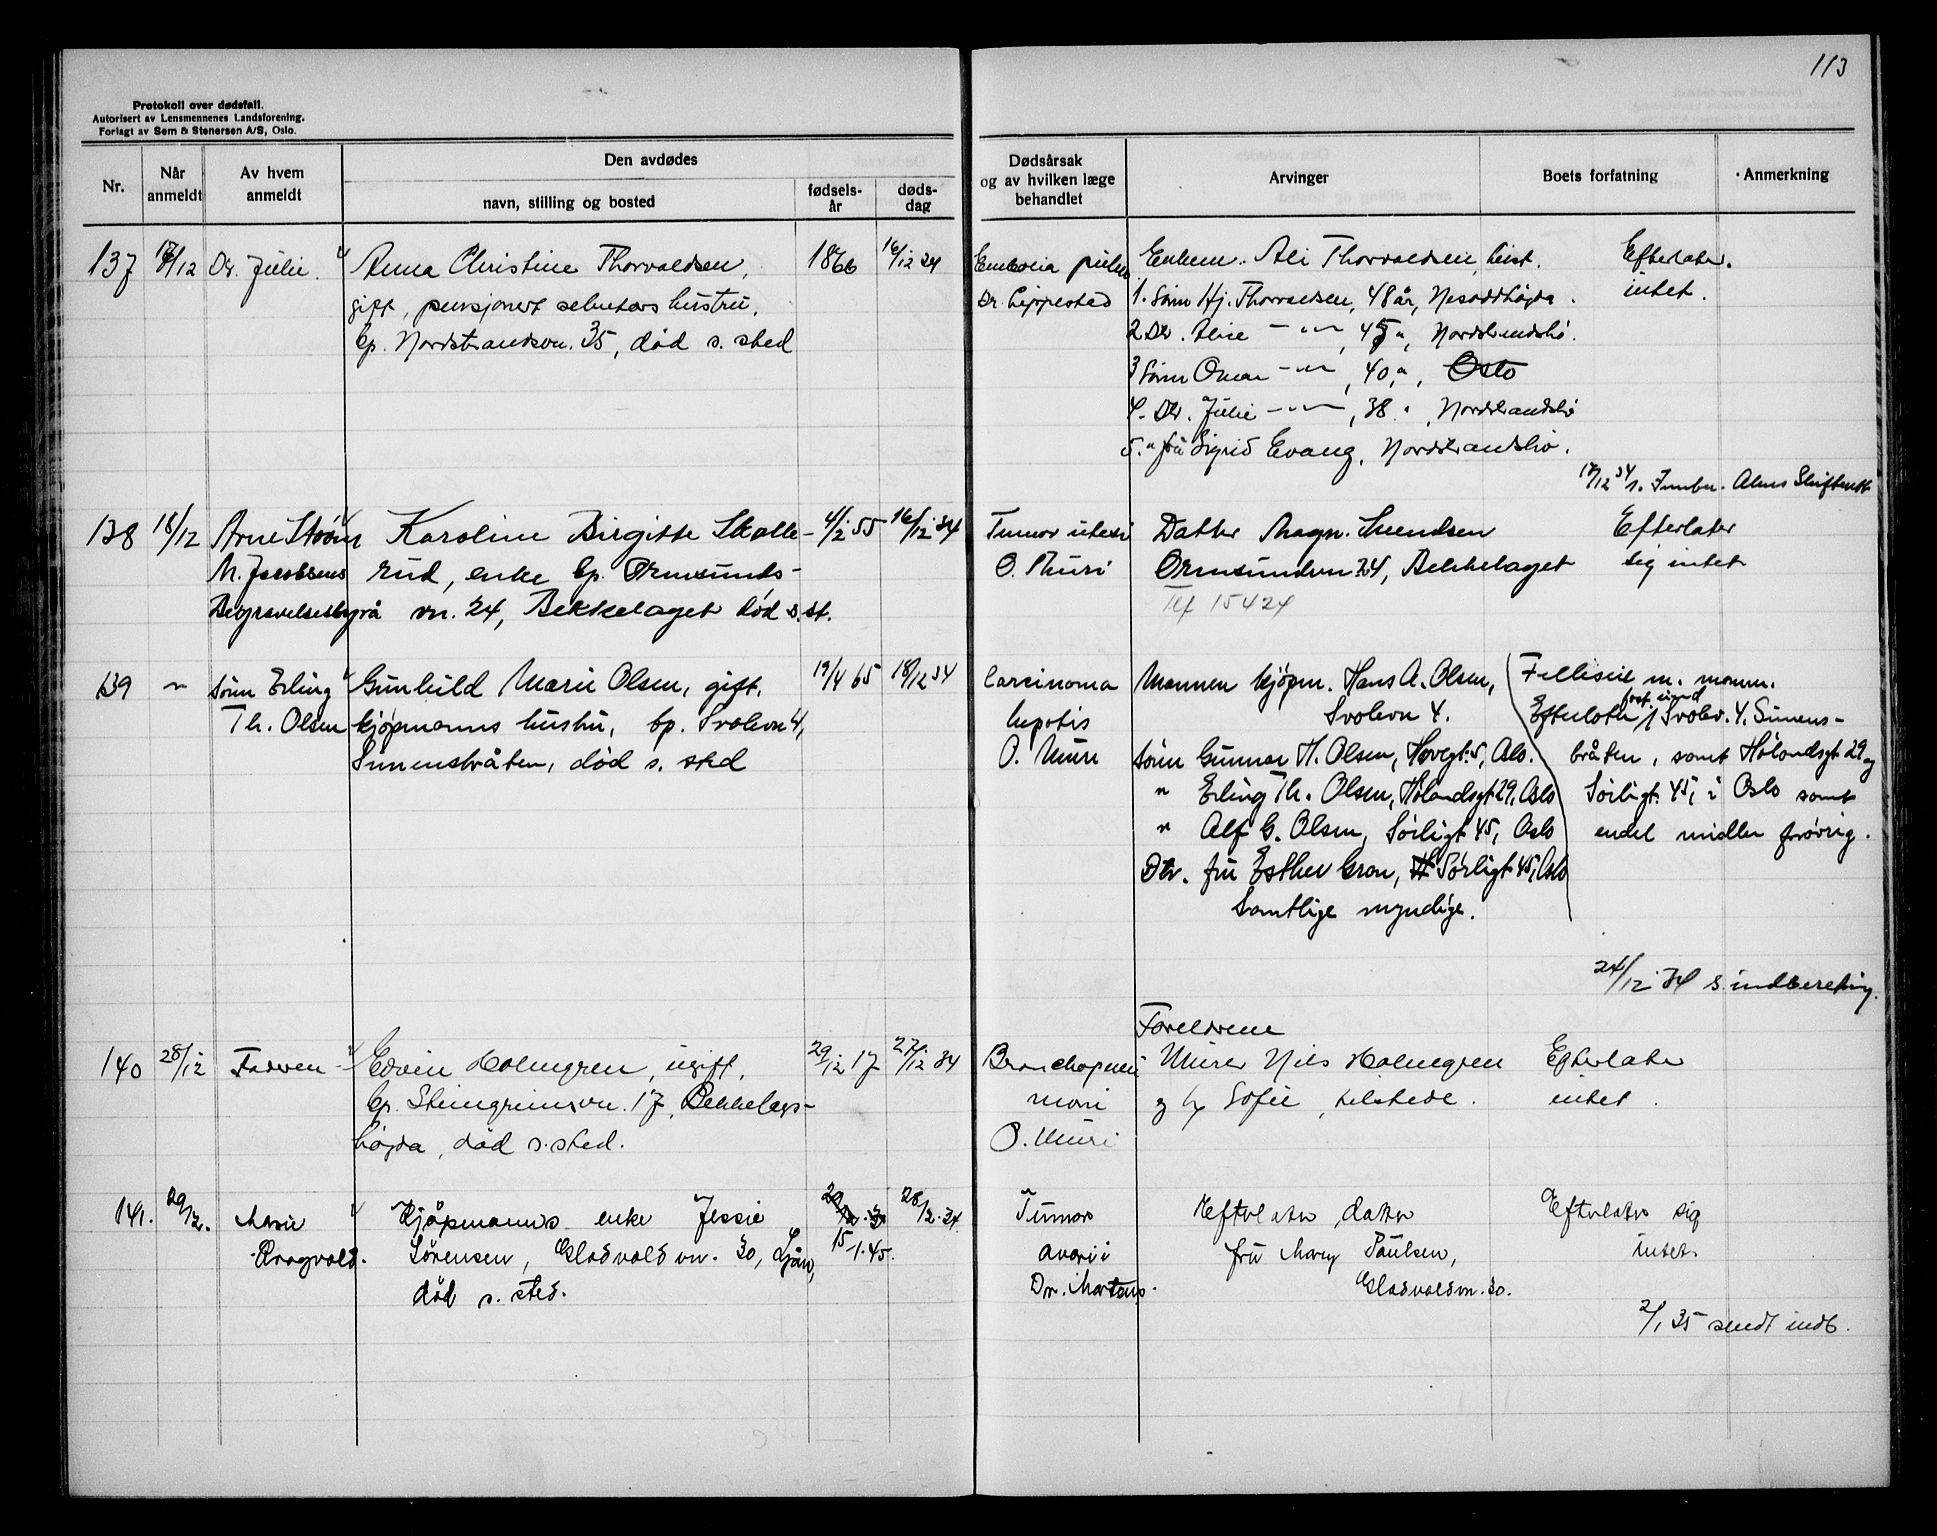 113
Protokoll over dødsfall.
Autorisert av Lensmennenes Landsforening.
Forlagt av Sem & Stenersen A/S, Oslo.
Nr.
Når anmeldt
Av hvem anmeldt
Den avdødes
navn, stilling og bosted
fødselsår
dødsdag
Dødsårsak og av hvilken læge behandlet
Arvinger
Boets forfatning
Anmerkning
137 17/12 Dtr. Julie. Anna Christine Thorvaldsen, 1866 16/12 34
gift, pensjonert hustru,
bp. Nordstrandsvn. 35, død s. sted
Embolia pulm
Dr. Lippestad
Enkem. Ali Thorvaldsen, hist.
1. Sønn Hj. Thorvaldsen, 48 år, Nesoddhøgda.
2. Dtr. Alice -"-, 45 ", Nordstrandshø.
3 Sønn Omar -"-, 40 ", Oslo
4. Dtr. Julie -"-, 38 ", Nordstrandshø
5. " fru Sigrid Evang, Nordstrandshø.
Efterlater
intet.
17/12 34 s. Akers Skifterett
138 18/12 Arne Strøm Karoline Birgitte Skolle- 4/12 55 16/12 34
M. Jacobsens rud, enke bp. Ormsunds-
Begravelsesbyrå vn. 24, Bekkelaget død s. st.
Tumor uteri
O. Muri
Datter Magn. Svendsen
Ormsundvn 24, Bekkelaget
Tlf 15424
Efterlater
sig intet
139 " sønn Erling Gunhild Marie Olsen, gift, 19/4 65 18/12 34
Th. Olsen kjøpmanns hustru, bp. Svolvn 4,
Simensbråten, død s. sted
Carcinoma
hepatis
O. Muri
Mannen kjøpm. Hans A. Olsen,
Svolvn 4.
sønn Gunnar H. Olsen, Hovegt. 5, Oslo.
" Erling Th. Olsen, Hölandsgt 29, Oslo
" Alf G. Olsen, Sörligt 45, Oslo
Dtr. fru Esther Cron, Sörligt 45, Oslo
Samtlige myndige.
Felleseie m. mann.
fast eiend
Efterlater Svolv. 4. Simens-
bråten, samt Hölandsgt 29 og
Sörligt. 45, i Oslo samt
endel midler forøvrig.
24/12 34 s. indberetning.
140 28/12 Faderen Edvin Holmgren, ugift, 29/12 17 27/12 34
bp. Steingrimsvn. 17, Bekkelags-
högda, død s. sted.
Bronchopneu
moni
O. Muri
Foreldrene
Murer Nils Holmgren
og h. Sofie, tilstede.
Efterlater
intet.
141. 29/12. Marie Kjöpmanns enke Jessie 28/12.34
Ragvald. Sörensen, Gladvoldvn. 30, Ljan, 15-1.45.
död s. sted.
Tumor
ovarii
Dr. Martens.
Efterlater datter
fru Mary Paulsen,
Gladvoldvn. 30.
Efterlater sig
intet
2/1 35 sendt indb.